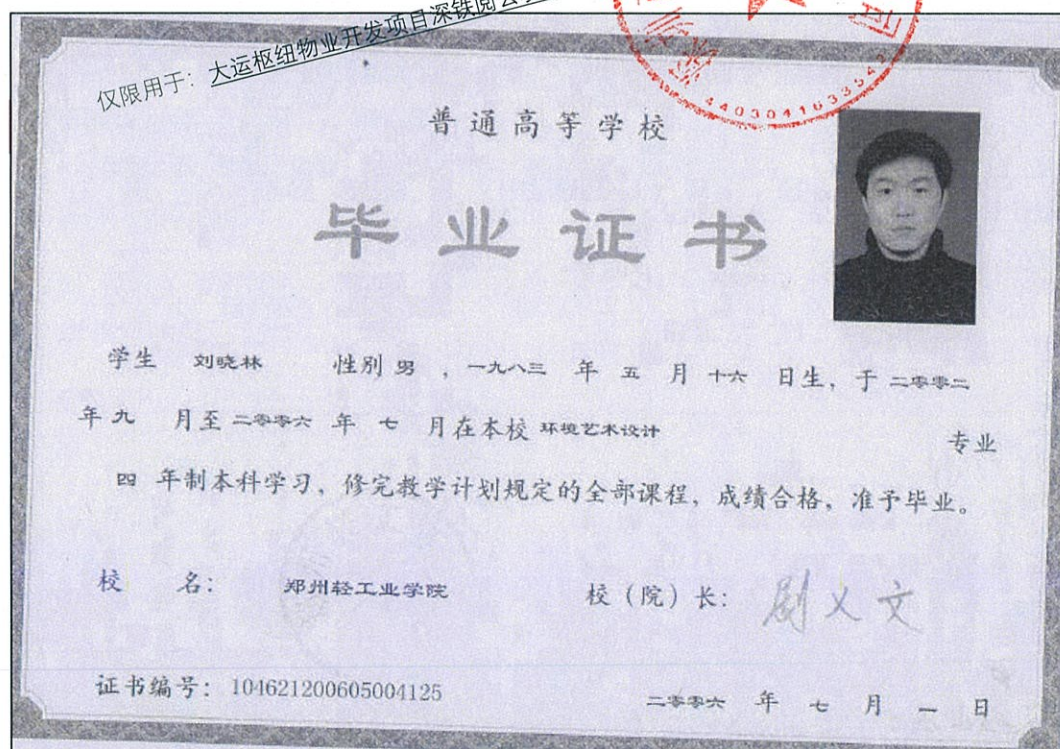 仅限用于：大运枢纽物业开发项目深铁阅云
4403041633542
普通高等学校
毕业证书
学生 刘晓林 性别 男 ，一九八三 年 五 月 十六 日生，于 二零零二
年 九 月至 二零零六 年 七 月在本校 环境艺术设计 专业
四 年制本科学习，修完教学计划规定的全部课程，成绩合格，准予毕业。
校 名： 郑州轻工业学院 校（院）长：
证书编号：104621200605004125 二零零六 年 七 月 一 日